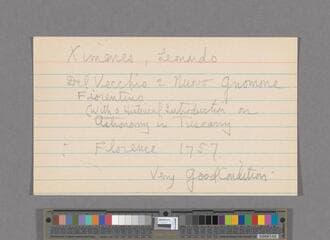 Ximenes, Leonardo
Del Vecchio e Nuovo Gnomone
Fiorentino
(With a Historical Introduction on
Astronomy in Tuscany
: Florence 1757.
Very Good Condition.